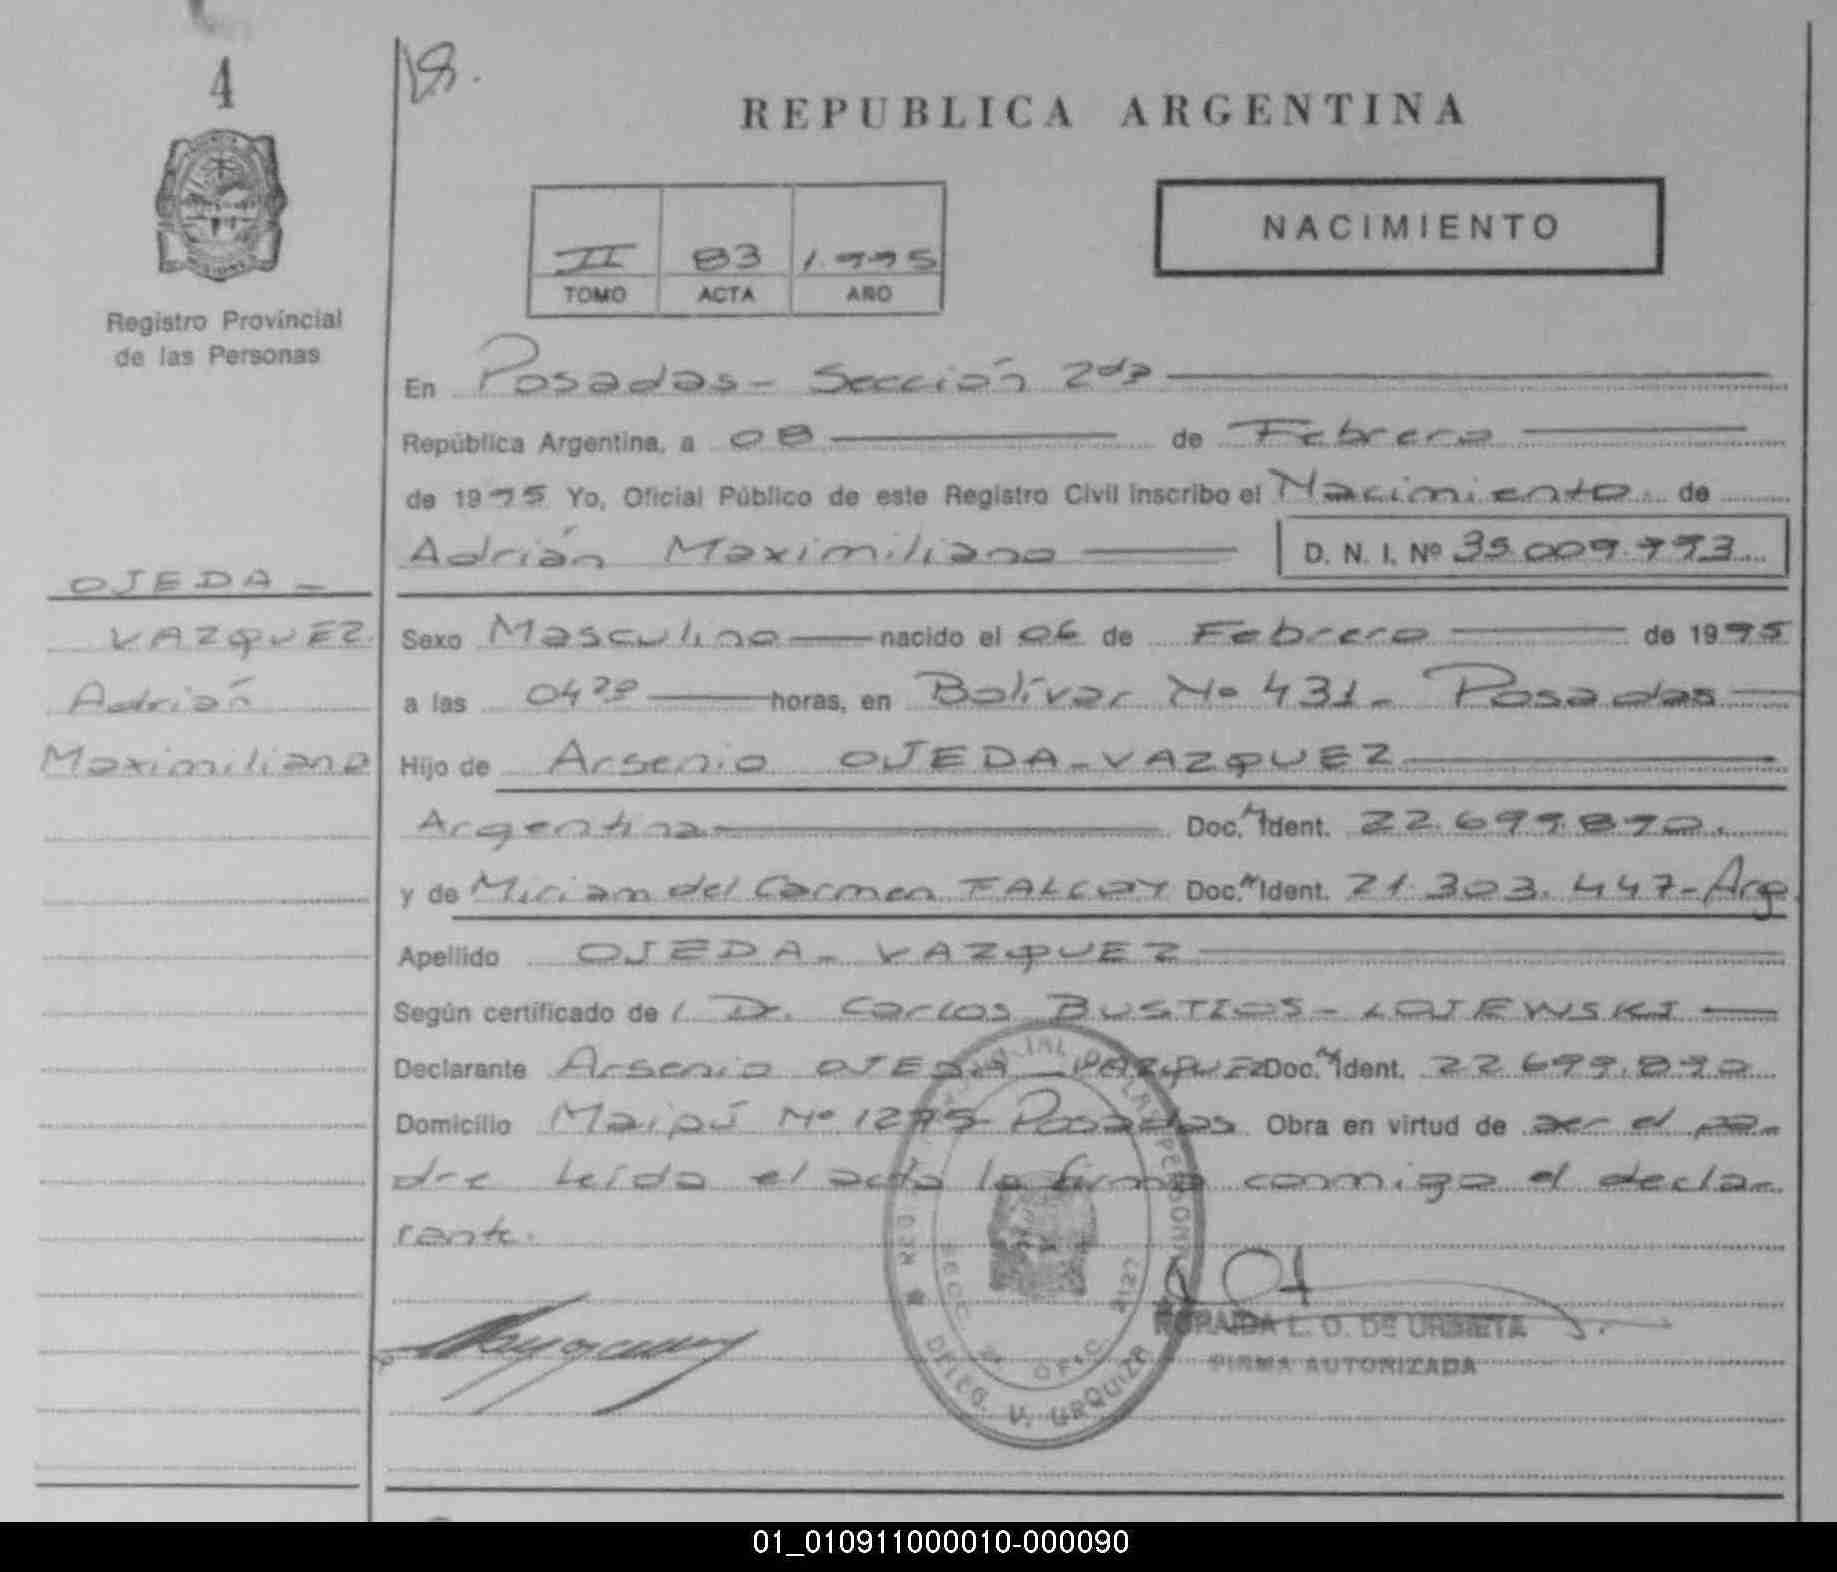 4
REPUBLICA ARGENTINA
NACIMIENTO
II 83 1.995
TOMO ACTA AÑO
Registro Provincial
de las Personas
En Posadas - Sección 2da
República Argentina, a 08 de Febrero
de 1995 Yo, Oficial Público de este Registro Civil inscribo el Nacimiento de
Adrián Maximiliano D. N. I. Nº
OJEDA -
VAZQUEZ
Adrián
Maximiliano
Sexo Masculino nacido el 06 de Febrero de 1995
a las 04 horas, en Bolívar Nº 431 - Posadas
Hijo de Arsenio OJEDA - VAZQUEZ
Argentina Doc. Ident. 22.699.890.
y de Miriam del Carmen Doc. Ident. 21.303.447 - Arg.
Apellido OJEDA - VAZQUEZ
Según certificado de l Dr. Carlos BUSTIOS - LOJEWSKI
Declarante Arsenio OJEDA - VAZQUEZ Doc. Ident. 22.699.890
Domicilio Maipú Nº 1295 Posadas Obra en virtud de ser el pa-
dre Leída el acta la firma conmigo el decla-
rante.
L. O. DE URBIETA
FIRMA AUTORIZADA
DELEG. V. URQUIZA
01_010911000010-000090